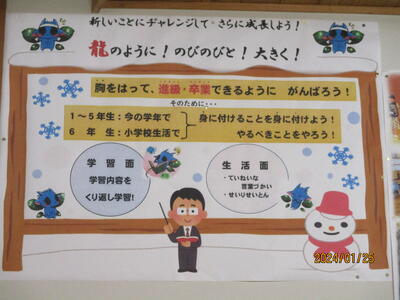 新しいことにチャレンジして さらに成長しよう！
龍のように！のびのびと！大きく！
胸をはって、進級・卒業できるように がんばろう！
そのために・・・
1～5年生：今の学年で 身に付けることを身に付けよう！
6 年 生：小学校生活で やるべきことをやろう！
学習面
学習内容を
くり返し学習！
生活面
・ていねいな
言葉づかい
・せいりせいとん
2024/01/25